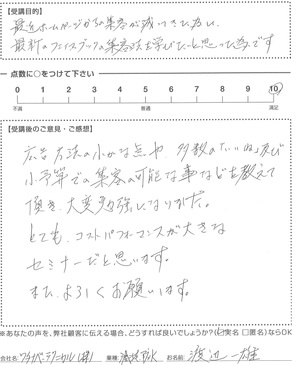 【受講目的】
最近ホームページからの集客が減ってきた為、
最新のフェイスブックの集客方法を学びたいと思った為です
点数に○をつけて下さい
0 1 2 3 4 5 6 7 8 9 10
不満 普通 満足
【受講後のご意見・ご感想】
広告方法の小かな点や、多数のいいね及び
小予算での集客の可能な事などを教えて
頂き、大変勉強になりました。
とても、コストパフォーマンスが大きな
セミナーだと思います。
また、よろしくお願いします。
※あなたの声を、弊社顧客に伝える場合、どうすれば良いでしょうか？(○実名 □匿名)ならOK
会社名: (株) 業種: お名前: 渡辺 一雄